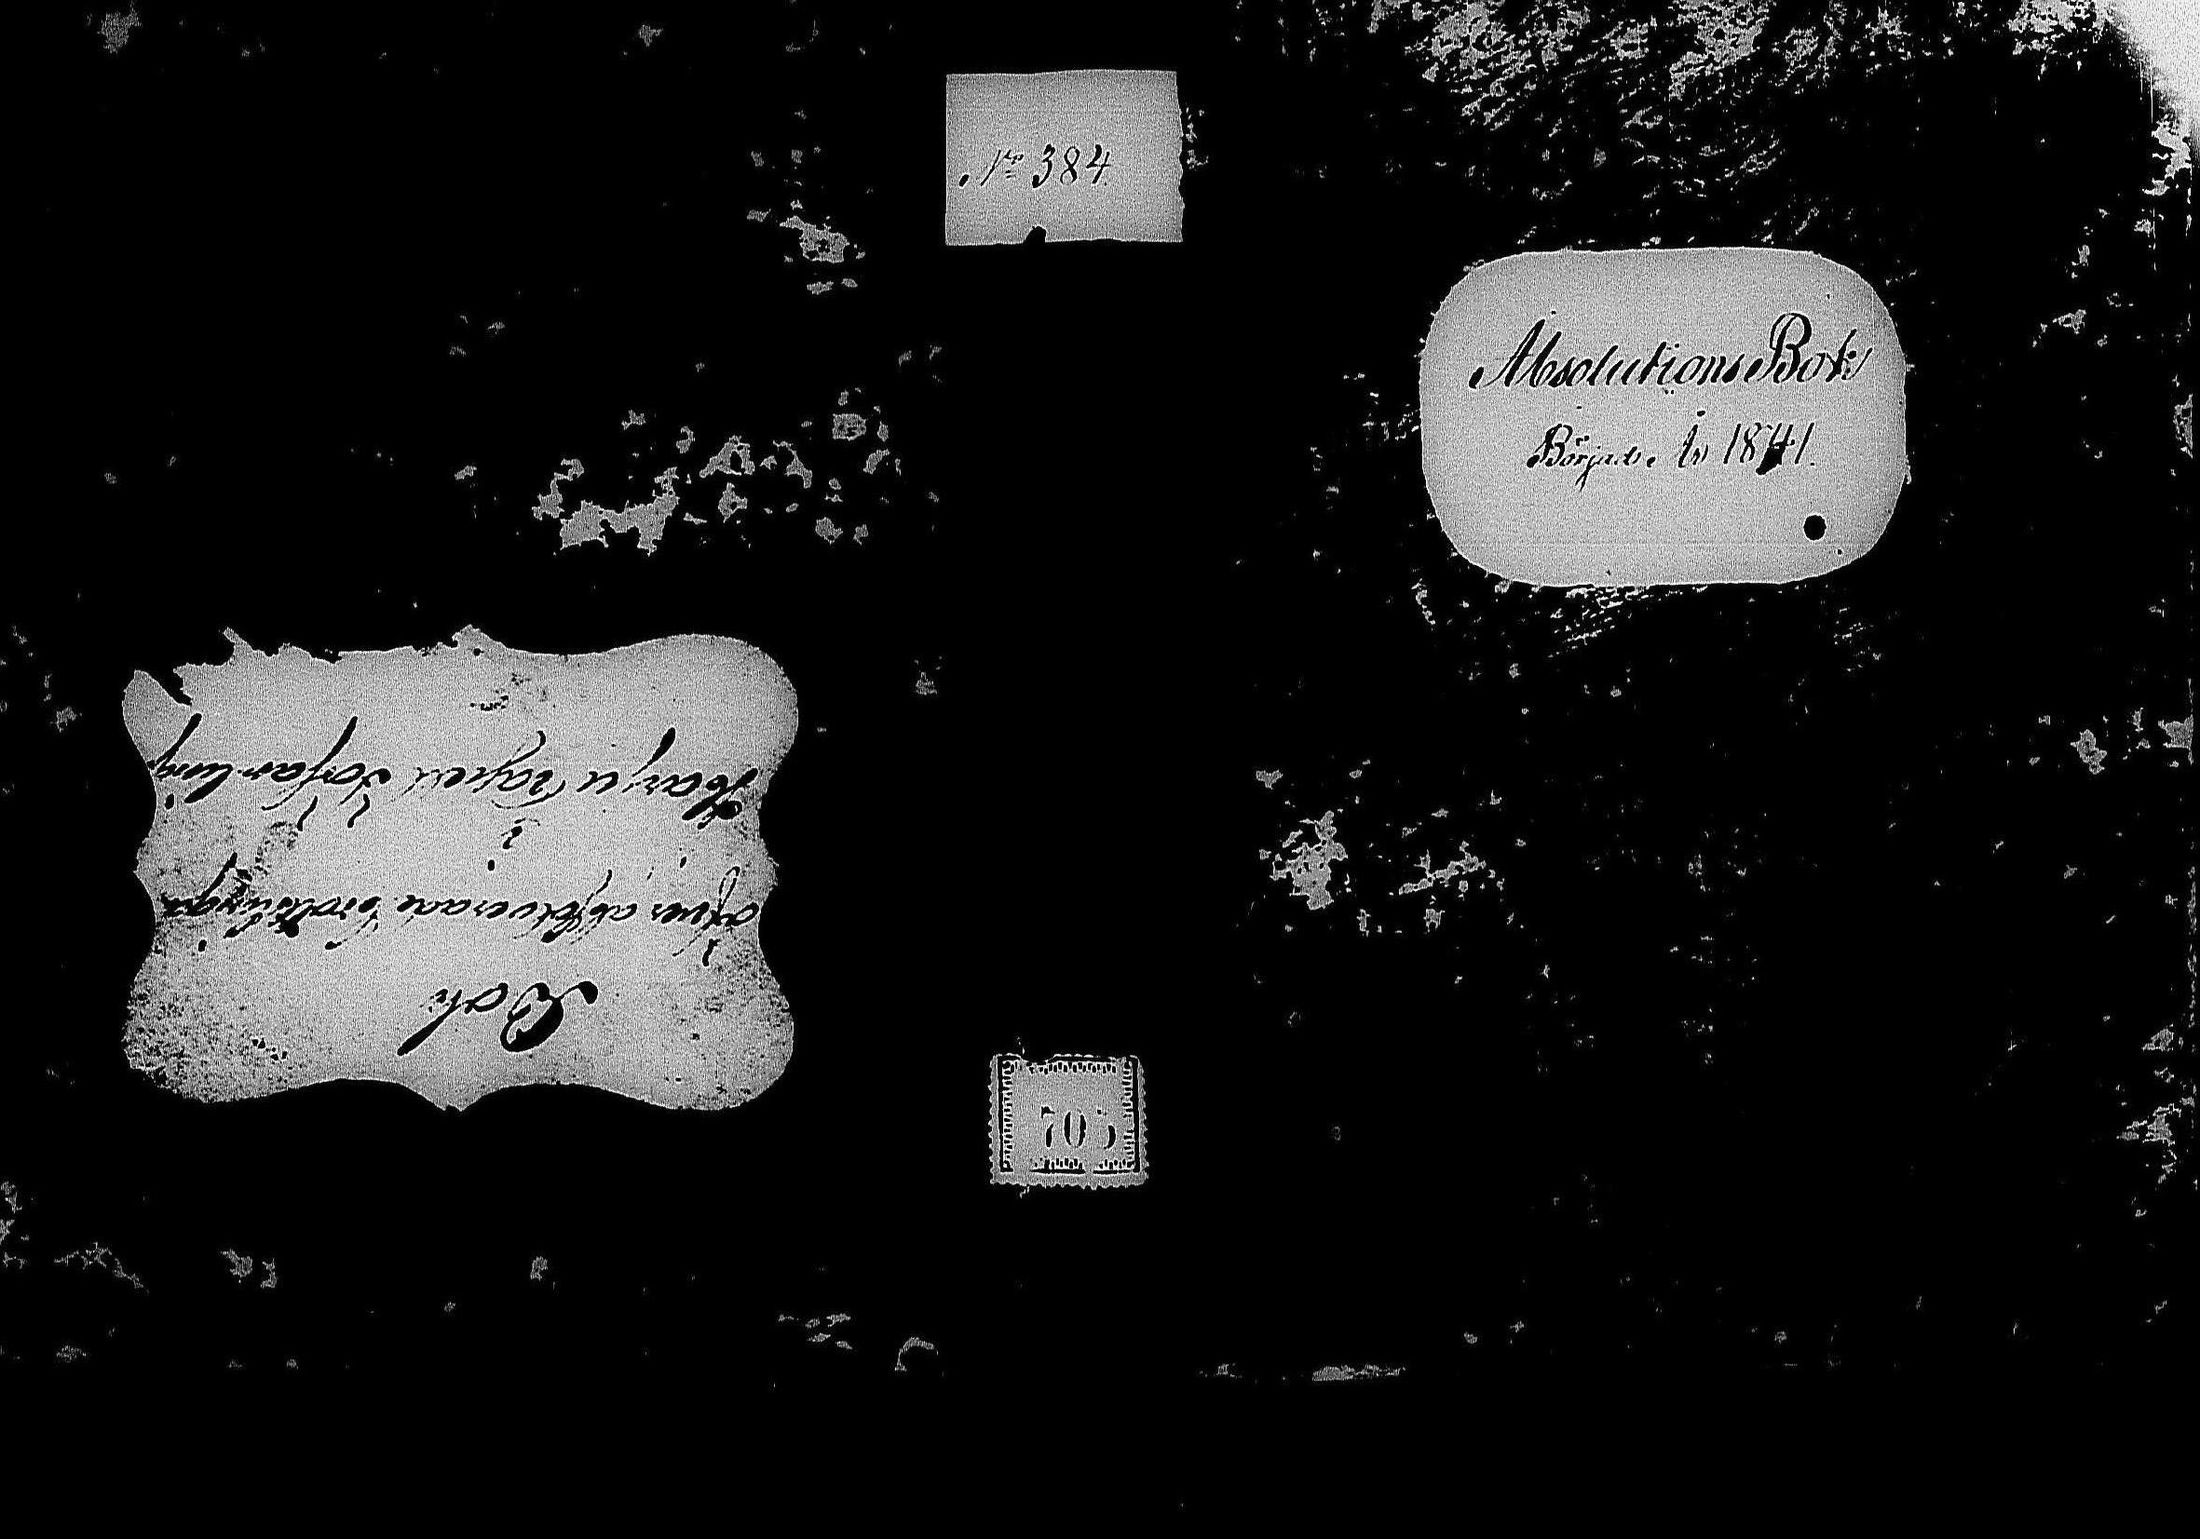 No 384.
Absolutions Bok
Börjad. år 1841.
Bok
öfver absolverade brottslinga
i
Församling
705